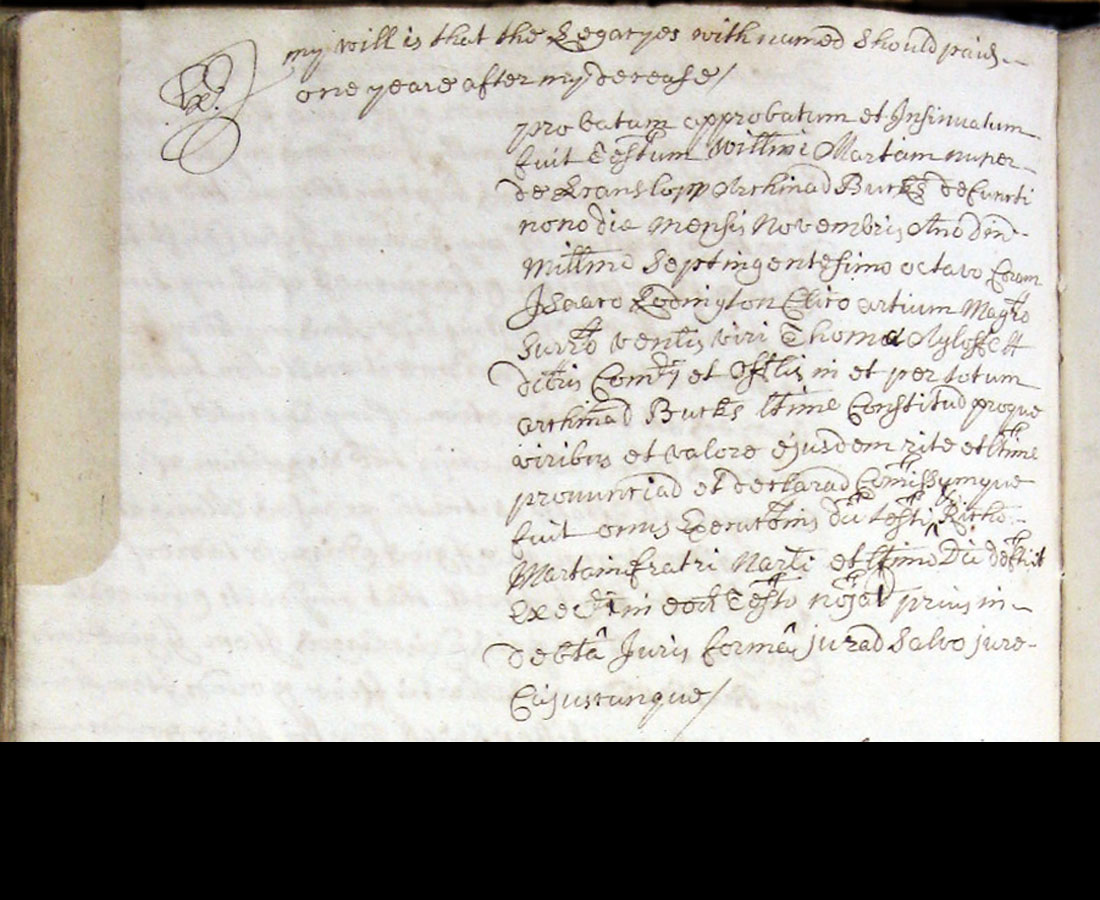 my will is that the Legacyes with named should paid
one yeare after my decease/
probatum approbatum et Insinuatum
fuit Testum Willmi Martam nuper
de Hanslopp Archinad Bucks defuncti
nono die mensis Novembris Ano dni
Millmo Septingentesimo octavo Coram
Isaaco Lodington Clico artium Magro
Surrō ventis viri Thoma Ayloffe
dctris Comrj et Offlis in et per totum
archinad Bucks ltime Constitud proque
viribus et valore ejusdem rite et ltime
pronunciad et declarad Comissumque
fuit onus Executonis dci testi Richo
Martam fratri Narli et ltimo dci deftit
Execri in eod Testo noiat prius in
debtâ Juris formâ jurad Salvo jure
Cujuscunque/